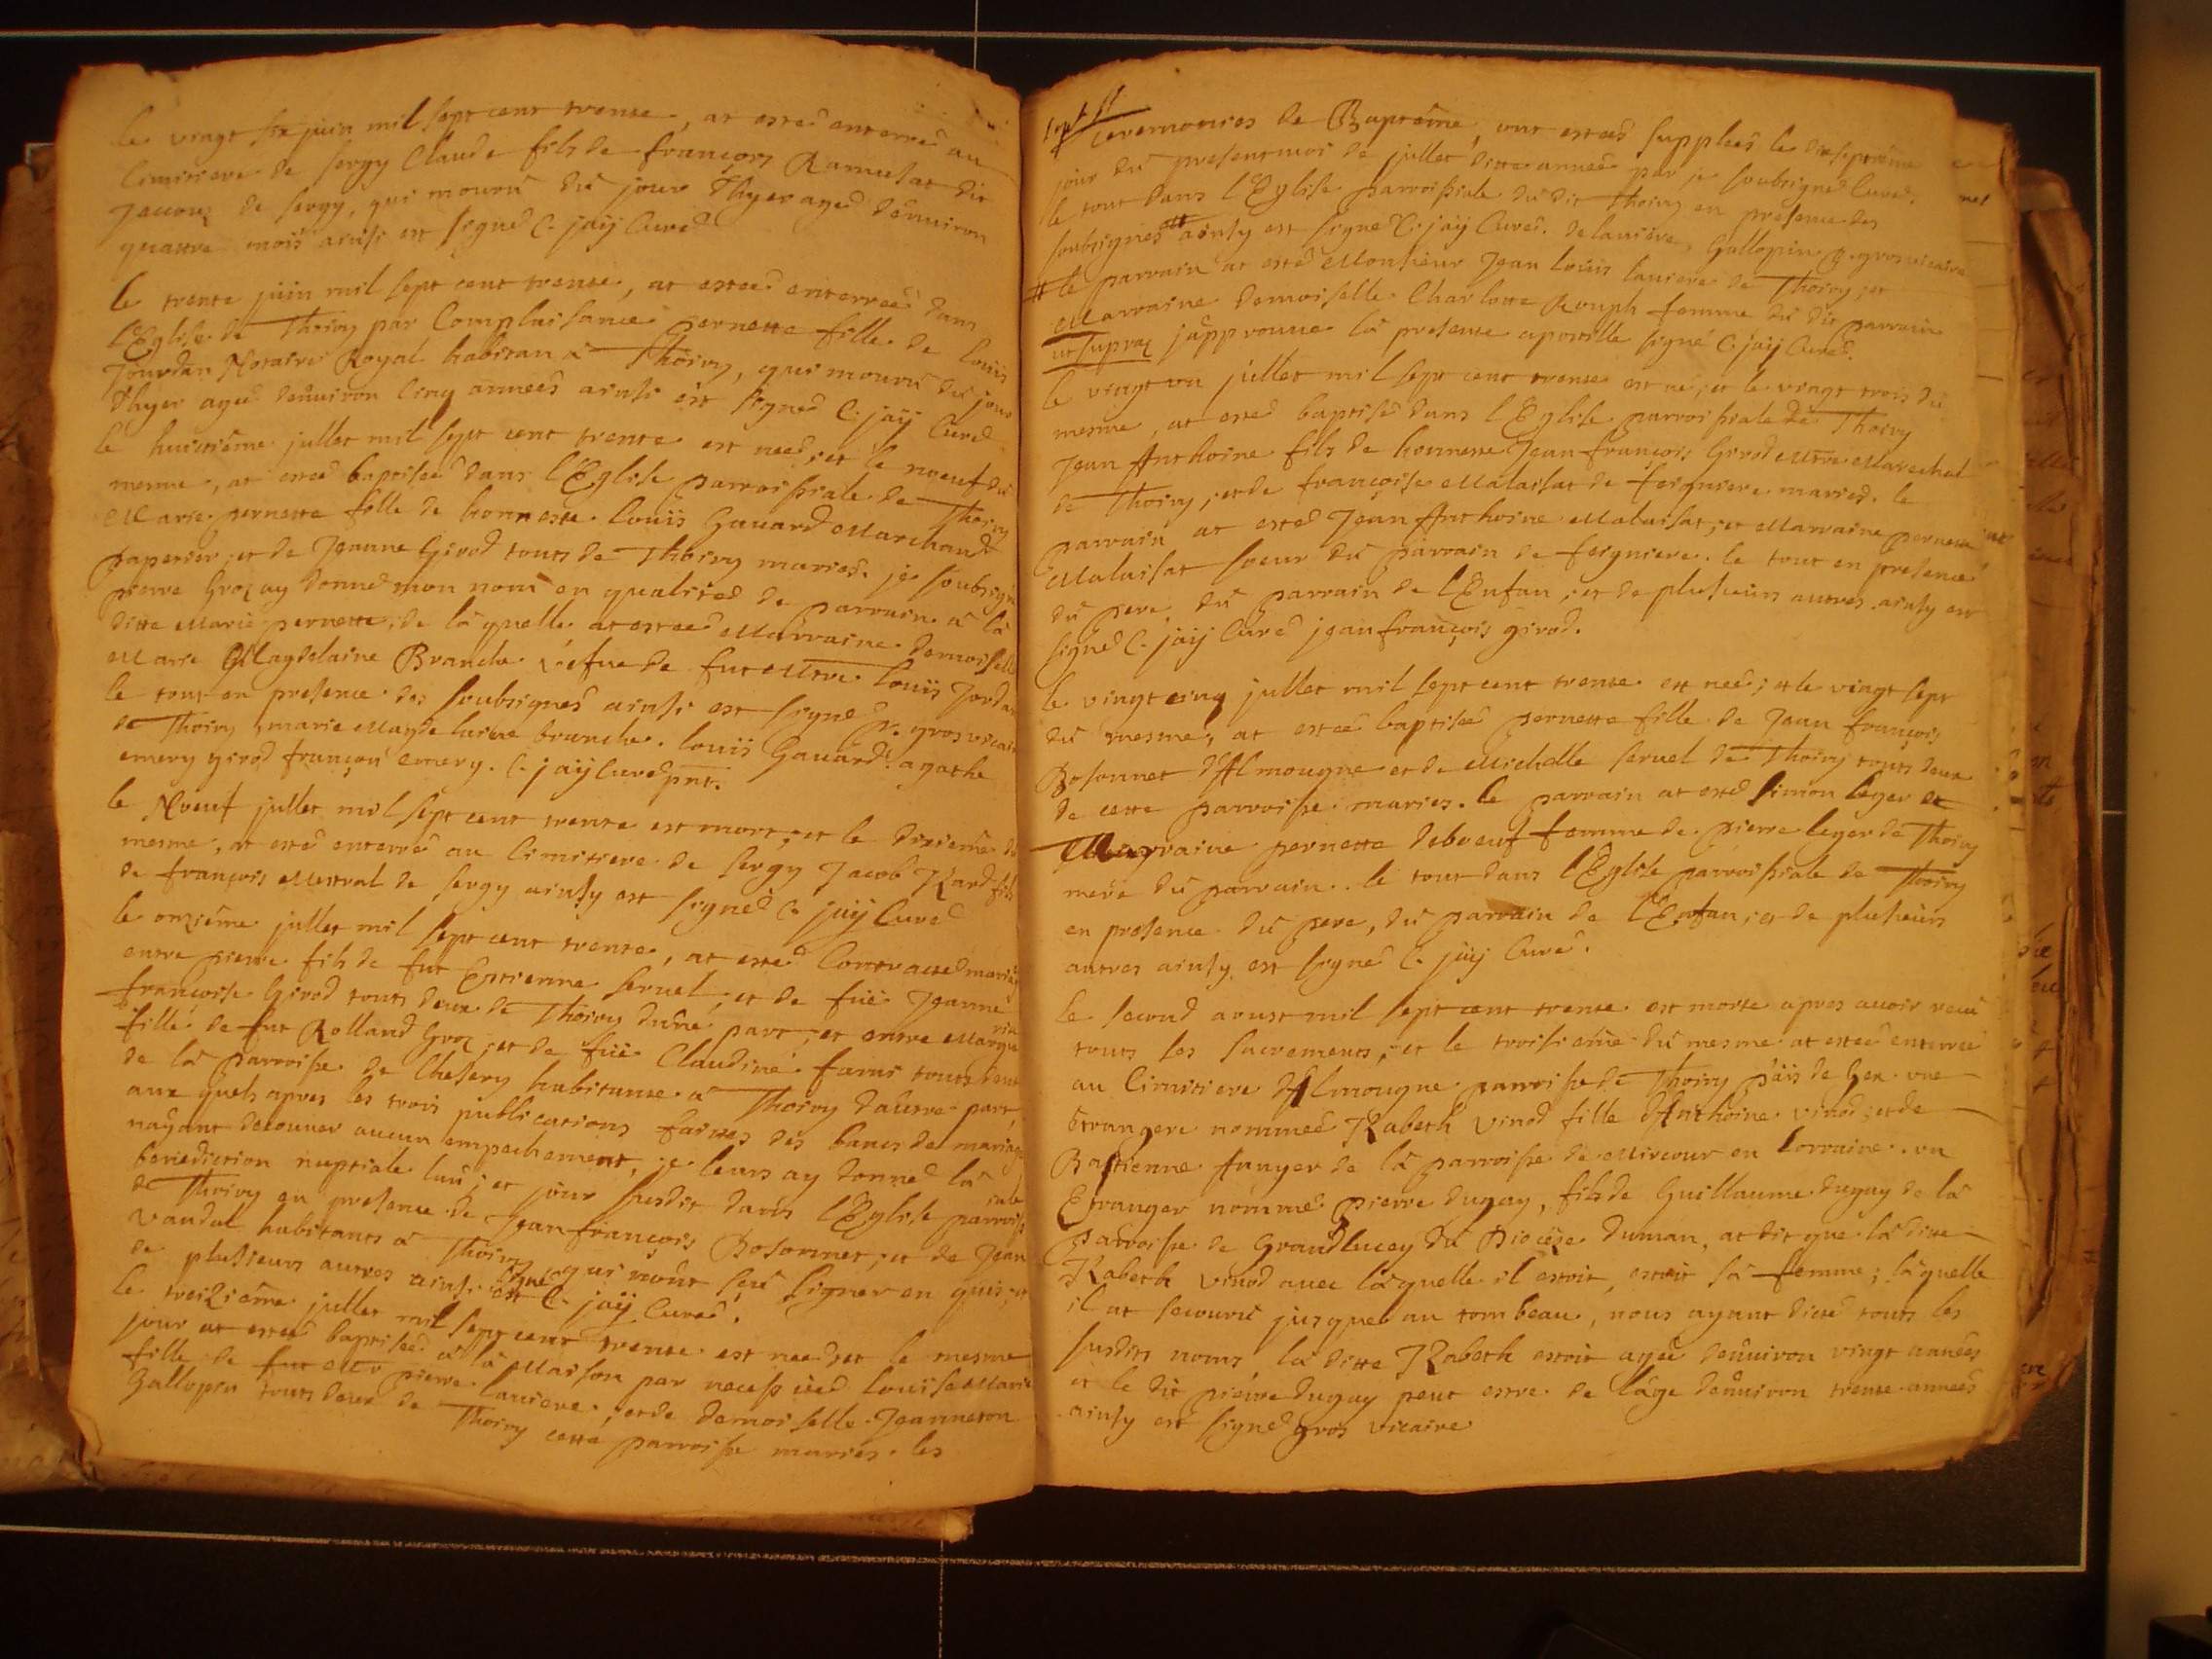 le vingt six juin mil sept cent trente, at esté enterré au
Cimitiere de sergy Claude fils de françois Ramusat dit
Jaccouz de sergy, qui mourù du jour d'hyer agé d'enuiron
quattre mois ainsi est signé C. jaÿ Curé
le trente juin mil sept cent trente, at estée enterrée dans
l'Eglise de Thoiry par Complaisance pernette fille de Loüis
Jourdan Notaire Royal habitan à Thoiry, qui mourù du jour
d'hyer agée d'enuiron cinq années ainsi est signé C. jaÿ Curé
le huictiéme jullet mil sept cent trente est née; et le noeuf du
mesme, at estée baptisée dans l'Eglise parroissiale de Thoiry
Marie pernette fille de honneste Loüis Gauard Marchand
papetier; et de Jeanne Girod touts de Thoiry mariés. je soubsigné
pierre Groz ay donné mon nom en qualited de parrain à là
ditte Marie pernette, de là quelle at estée Marraine demoiselle
Marie Magdelaine Branche véfue de fut Mtre Loüis Jordan
le tout en présence des soubsignés ainsi est signé p. gros vicaire
de Thoiry, marie magdelaine branche. Loüis Gauard. agathe
emery girod françou emery. C. jaÿ curé pnt.
le Noeuf jullet mil sept cent trente est mort; et le dixiéme du
mesme, at esté enterré au Cimitiere de sergy Jacob Izard fils
de françois Mestral de sergy ainsy est signé C. jaÿ Curé
le onziéme jullet mil sept cent trente, at esté Contracté mariage
entre pierre fils de fut Estienne seruel; et de füe Jeanne
françoise Girod touts deux de Thoiry d'une part; et entre Marguerite
fille de fut Rolland Groz; et de füe Claudine famy touts deux
de là parroisse de Chesery habitante à Thoiry d'autre part,
aux quels apres les trois publications faittes des bancs de mariage
n'ayant découuer aucun empechement, je leurs ay donné là
benediction nuptiale lan; et jour susdit dans l'Eglise parroissiale
de Thoiry en presence de Jean françois Bosonnet; et de Jean
Vandal habitants à Thoiry qui n'ont seu signer enquis; et
de plusieurs autres ainsi est signé C. jaÿ Curé.
le treiziéme jullet mil sept cent trente est née; et le mesme
jour at estée baptisée à là Maison par necessited Louise Marie
fille de fut Mr pierre Lauiere; et de demoiselle Jeanneton
Gallopin touts deux de Thoiry cette parroisse mariés. les
ceremonies de Baptéme, ont estées supplées le dixseptiéme
jour du present moi de jullet ditte année par je soubsigné Curé.
le tout dans l'Eglise parroissiale du dit Thoiry en presence des
soubsignés # ainsy est signé C. jaÿ Curé. delauiere, Gallopin p. gros vicaire
# le parrain at esté Monsieur Jean Loüis lauiere de Thoiry; et
Marraine demoiselle Charlotte Rouph femme du dit parrain
ut supra j'approuue là presente apostille signé C. jaÿ Curé.
le vingt un jullet mil sept cent trente est né; et le vingt trois du
mesme, at esté baptisé dans l'Eglise parroissiale de Thoiry
Jean Anthoine fils de honneste Jean françois Girod Mtre Marechal
de Thoiry; et de françoise Malaisat de feigniere mariés. le
parrain at esté Jean Anthoine Malaisat; et Marraine pernette
Malaisat soeur du parrain de feigniere. le tout en presence
du pere, du parrain de l'Enfan; et de plusieurs autres ainsy est
signé C. jaÿ Curé jean françois girod.
le vingt cinq jullet mil sept cent trente est née; et le vingt sept
du mesme, at estée baptisée pernette fille de Jean françois
Bosonnet d'Almougne et de Michelle seruel de Thoiry touts deux
de cette parroisse mariés. le parrain at esté simon leger et
Marraine pernette deboeuf femme de pierre leger de Thoiry
mere du parrain. le tout dans l'Eglise parroissiale de Thoiry
en presence du pere, du parrain de l'Enfan; et de plusieurs
autres ainsy est signé C. jaÿ Curé.
le second aoust mil sept cent trente est morte apres auoir receu
touts les sacrements; et le troisiéme du mesme at estée enterrée
au Cimitiere d'Almougne parroisse de Thoiry païs de Gex une
étrangere nommée Izabeth vinod fille d'Anthoine vinod; et de
Bastienne fanyer de là parroisse de Mircour en lorraine. un
Etranger nommé pierre dugay, fils de Guillaume dugay de là
parroisse de Grandlucey du Diocèse duman, at dit que là ditte
Izabeth vinod auec làquelle il estoit, estoit sà femme; làquelle
il at secouru jusques au tombeau, nous ayant dicté touts les
susdits noms, là ditte Izabeth estoit agée d'enuiron vingt années
et le dit pierre dugay peut estre de l'àge d'enuiron trente années
ainsy est signé gros vicaire